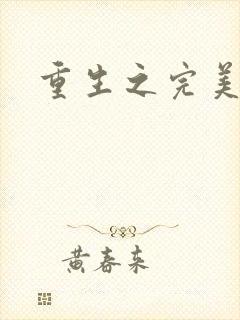 重生之完美
黄春来